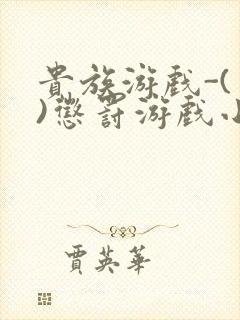 貴族游戲-(
)懲罰游戲小
賈英華